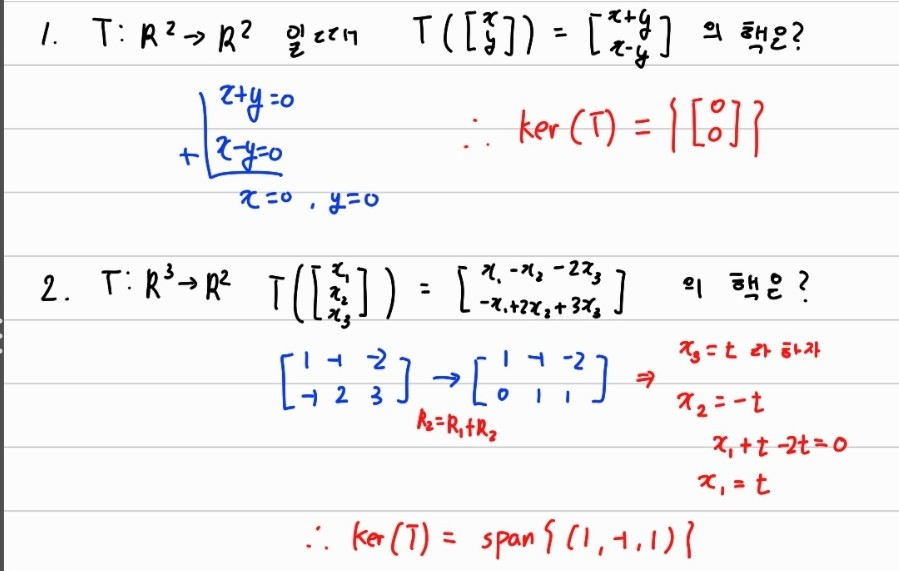 1. T: R² → R² 일 때 T([x y]) = [x+y x-y] 의 핵은?
x+y=0
+ x-y=0
x=0, y=0
∴ ker(T) = {[0 0]}
2. T: R³ → R² T([x₁ x₂ x₃]) = [x₁-x₂-2x₃ -x₁+2x₂+3x₃] 의 핵은?
[1 -1 -2 -1 2 3] → [1 -1 -2 0 1 1] ⇒
R₂=R₁+R₂
x₃=t 라 하자
x₂=-t
x₁+t-2t=0
x₁=t
∴ ker(T) = span{(1,-1,1)}